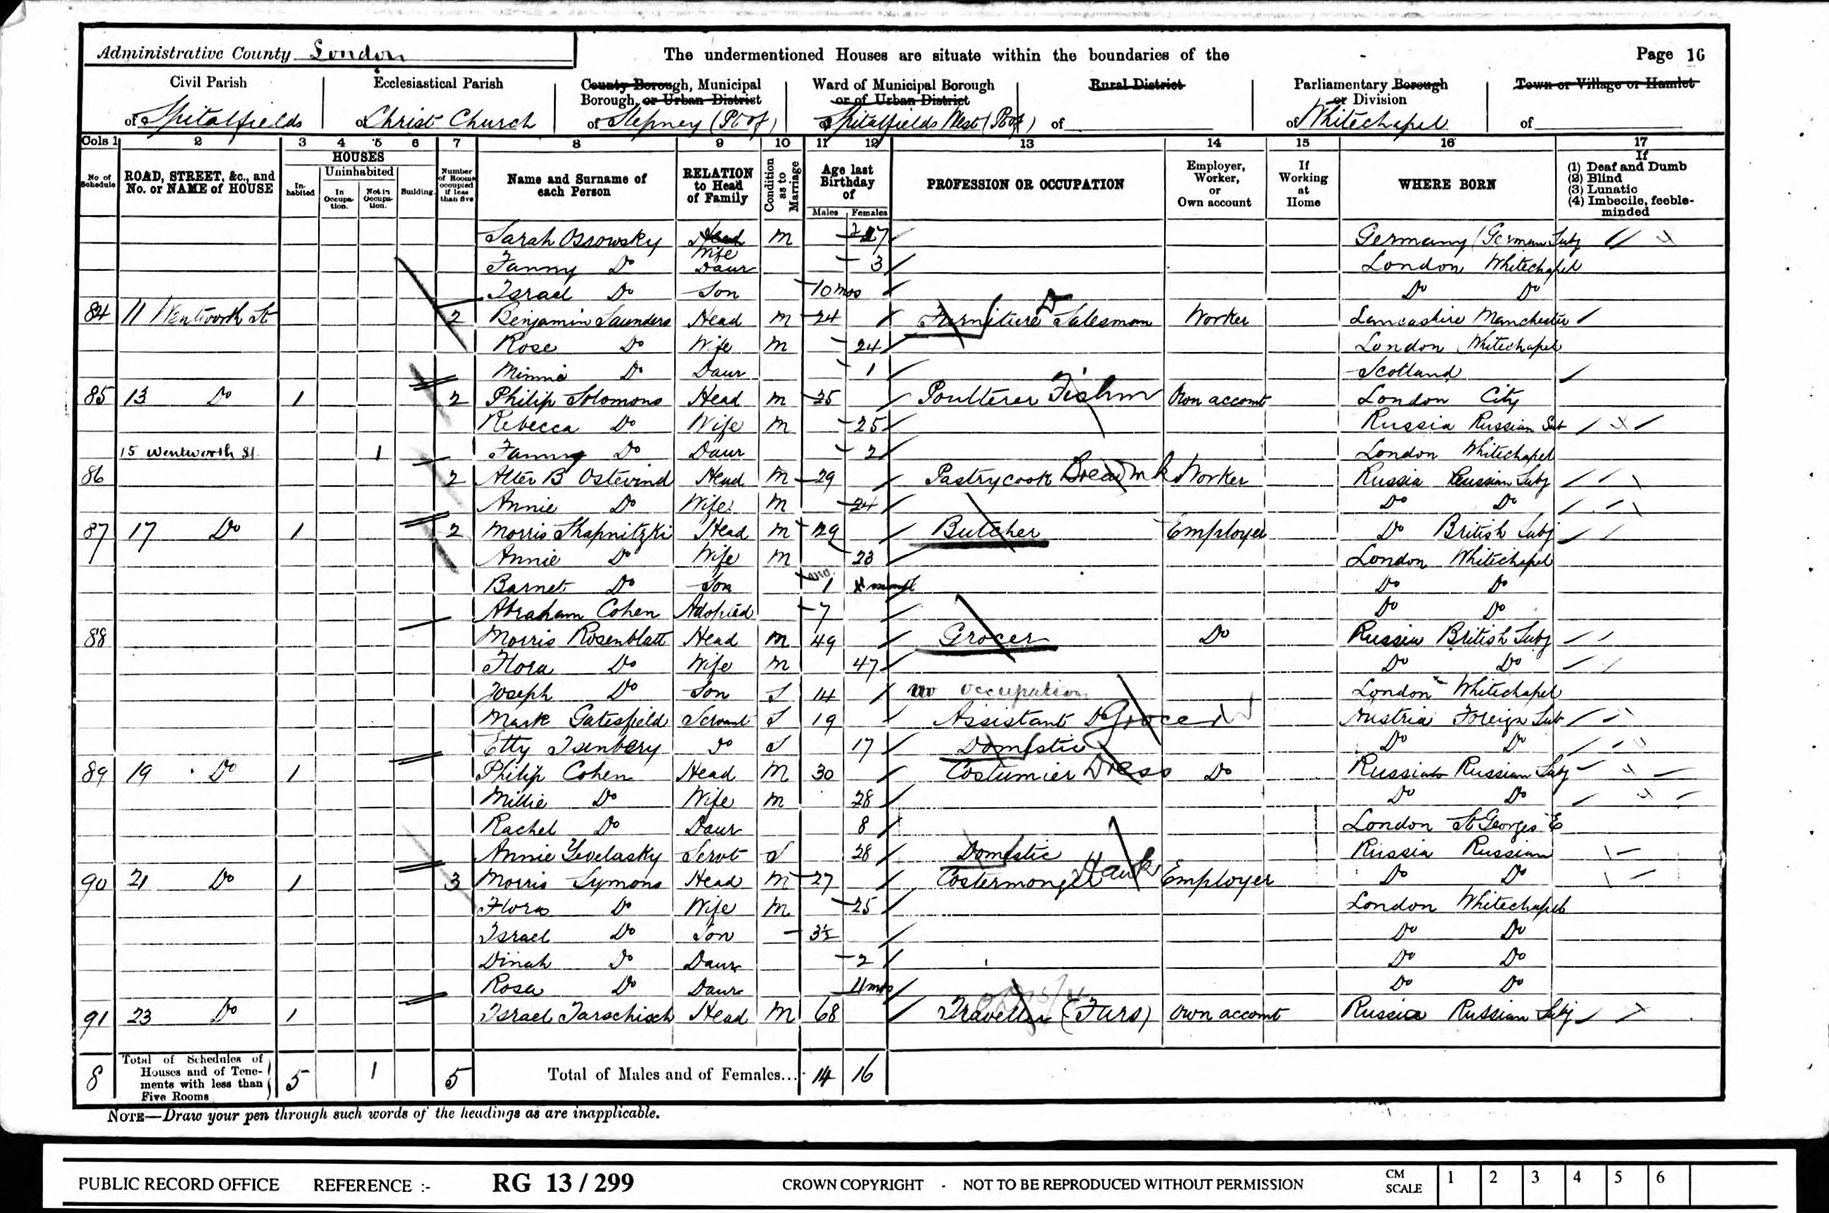 Administrative County London The undermentioned Houses are situate within the boundaries of the Page 16
Civil Parish Ecclesiastical Parish County Borough, Municipal Borough, or Urban District Ward of Municipal Borough or of Urban District Rural District Parliamentary Borough or Division Town or Village or Hamlet
of Spitalfields of Christ Church of Stepney (Pt of) of Spitalfields West (Pt of) of of Whitechapel of
Cols 1 2 3 4 5 6 7 8 9 10 11 12 13 14 15 16 17
No. of Schedule ROAD, STREET, &c., and No. or NAME of HOUSE HOUSES Inhabited Uninhabited In Occupation. Not in Occupation. Building. Number of Rooms occupied if less than five Name and Surname of each Person RELATION to Head of Family Condition as to Marriage Age last Birthday of Males Females PROFESSION OR OCCUPATION Employer, Worker, or Own account If Working at Home WHERE BORN If (1) Deaf and Dumb (2) Blind (3) Lunatic (4) Imbecile, feeble-minded
Sarah Ossowsky Head Wife M 27 Germany (German Subj
Fanny Do Daur 3 London Whitechapel
Israel Do Son 10 mos Do Do
84 11 Wentworth St 2 Benjamin Saunders Head M 24 Furniture Salesman Worker Lancashire Manchester
Rose Do Wife M 24 London Whitechapel
Minnie Do Daur 1 Scotland
85 13 Do 1 2 Philip Solomons Head M 25 Poulterer Fishm Own account London City
Rebecca Do Wife M 25 Russia Russian Sub
15 Wentworth St. 1 Fanny Do Daur 2 London Whitechapel
86 2 Alter B Ostevind Head M 29 Pastrycook Bread mk Worker Russia Russian Subj
Annie Do Wife M 24 Do Do
87 17 Do 1 2 Morris Shapnitzki Head M 29 Butcher Employer Do British Subj
Annie Do Wife M 23 London Whitechapel
Barnet Do Son 1 month Do Do
Abraham Cohen Adopted 7 Do Do
88 Morris Rosenblatt Head M 49 Grocer Do Russia British Subj
Flora Do Wife M 47 Do Do
Joseph Do Son S 14 no occupation London Whitechapel
Mark Gatesfield Servant S 19 Assistant Do Grocer Austria Foreign Sub
Etty Isenbery Do S 17 Domestic Do Do
89 19 Do 1 Philip Cohen Head M 30 Costumier Dress Do Russia Russian Subj
Millie Do Wife M 28 Do Do
Rachel Do Daur 8 London St Georges E
Annie Yevelasky Servt S 28 Domestic Russia Russian
90 21 Do 1 3 Morris Symons Head M 27 Costermonger Hawk Employer Do Do
Flora Do Wife M 25 London Whitechapel
Israel Do Son 3½ Do Do
Dinah Do Daur 2 Do Do
Rosa Do Daur 11 mos Do Do
91 23 Do 1 Israel Tarschisch Head M 68 Traveller (Furs) Own account Russia Russian Subj
8 Total of Schedules of Houses and of Tenements with less than Five Rooms 5 1 5 Total of Males and of Females... 14 16
NOTE—Draw your pen through such words of the headings as are inapplicable.
PUBLIC RECORD OFFICE REFERENCE :- RG 13 / 299 CROWN COPYRIGHT - NOT TO BE REPRODUCED WITHOUT PERMISSION CM SCALE 1 2 3 4 5 6